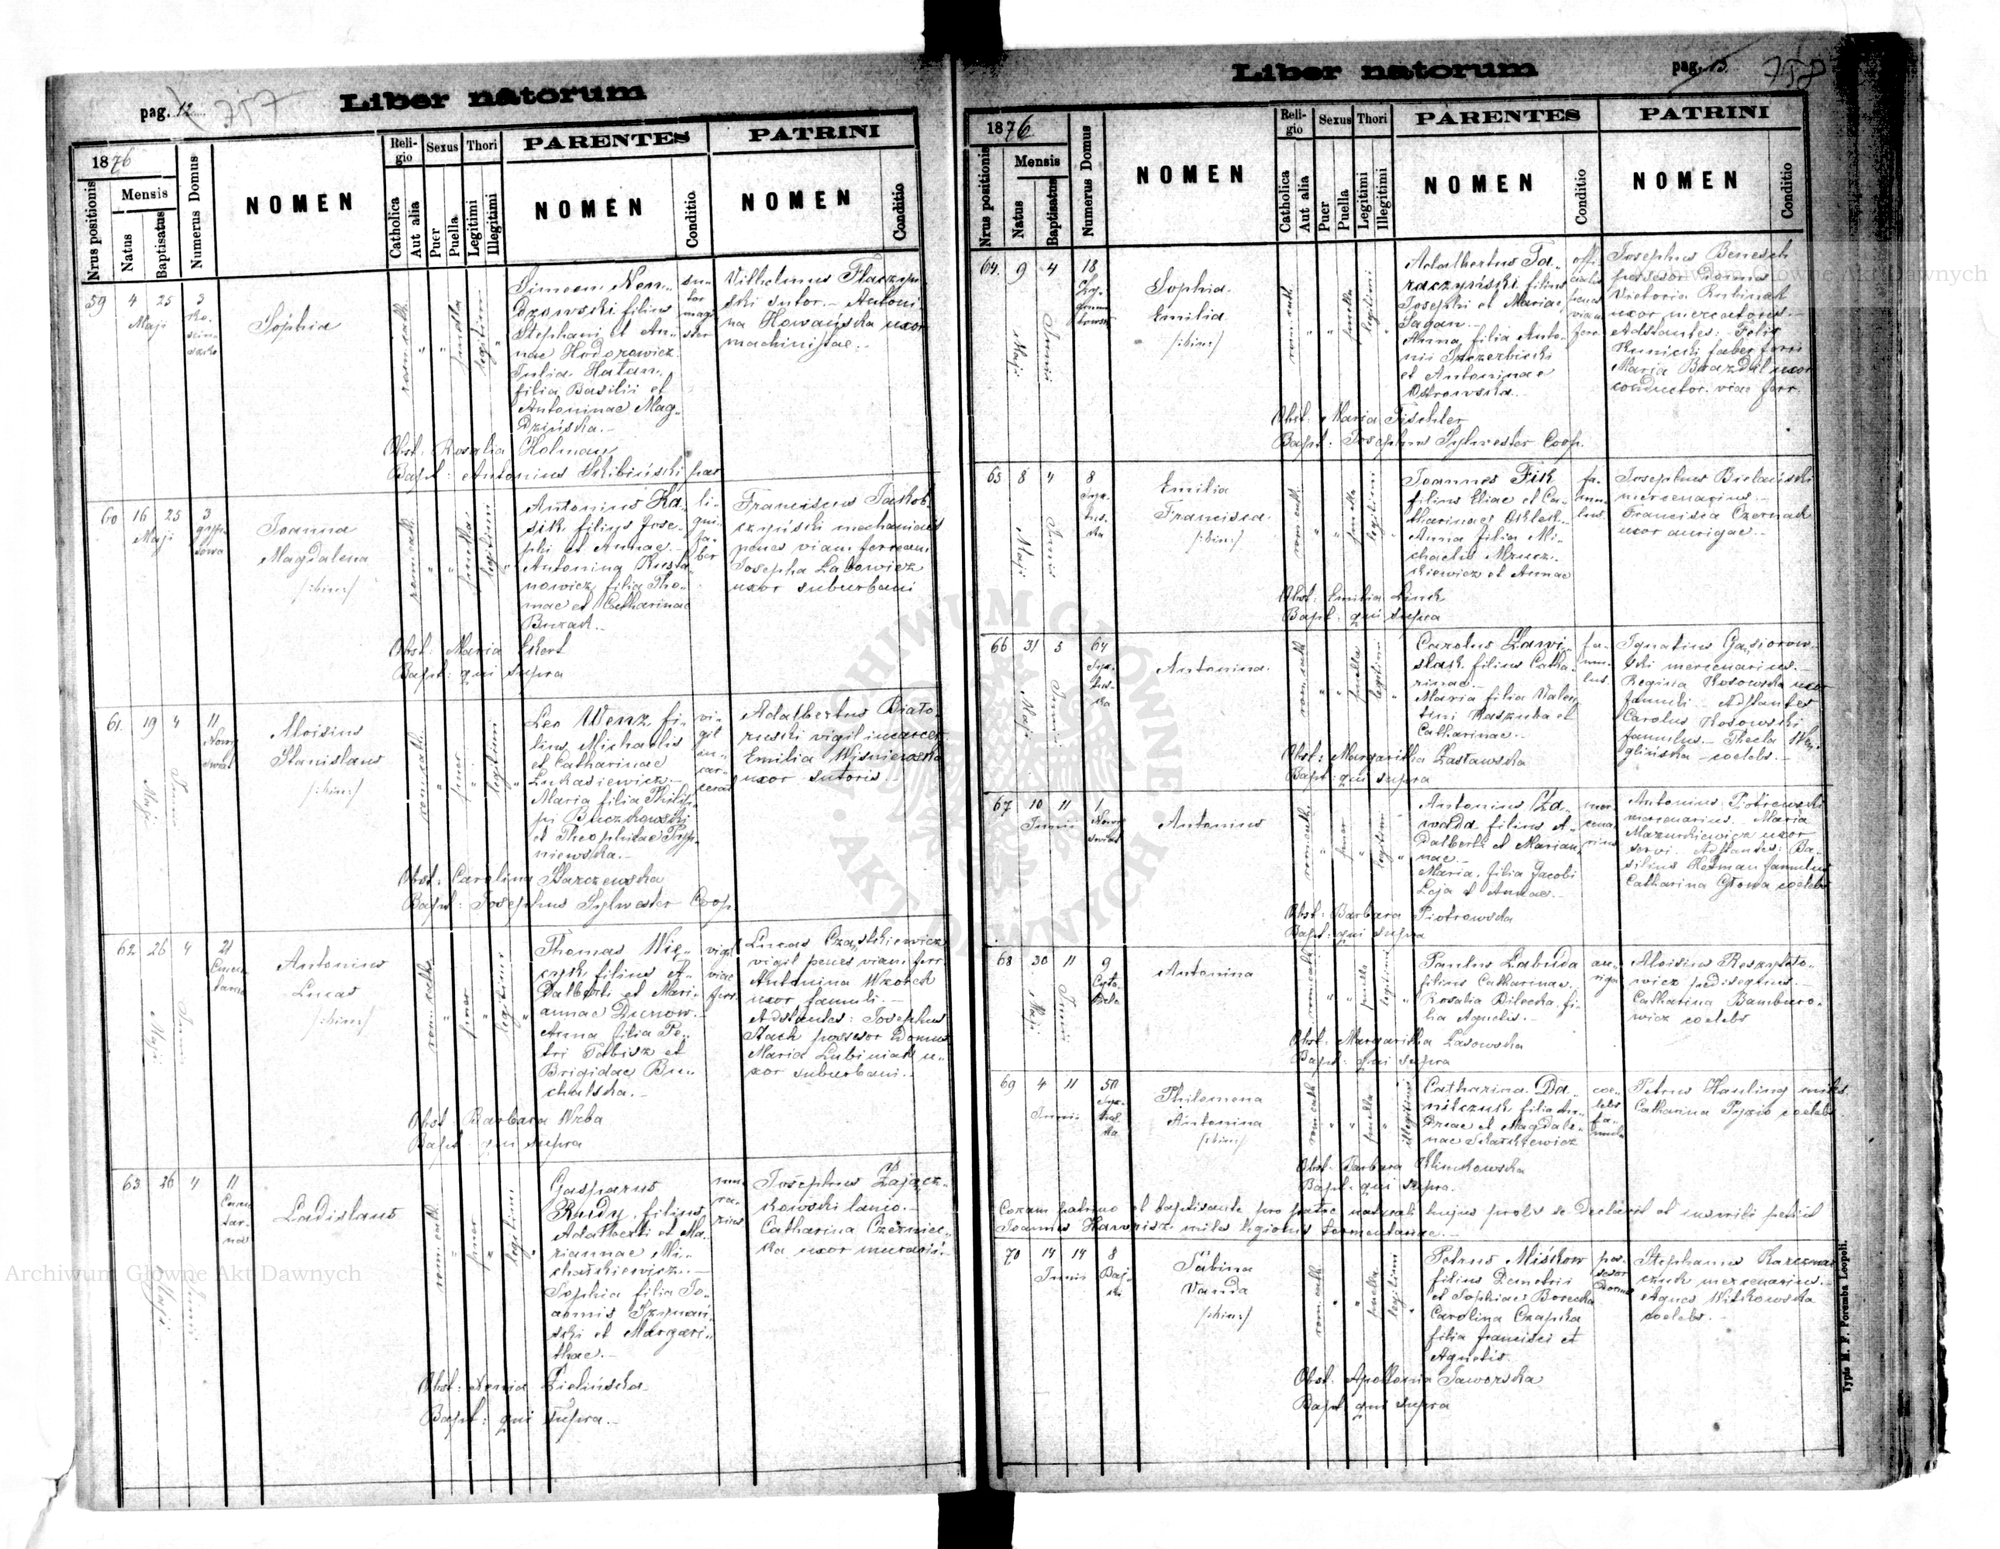 pag. 12 757
Liber natorum
1876
Nrus positionis
Mensis
Natus
Baptisatus
Numerus Domus
NOMEN
Religio
Catholica
Aut alia
Sexus
Puer
Puella
Thori
Legitimi
Illegitimi
PARENTES
NOMEN
Conditio
PATRINI
NOMEN
Conditio
59 4 25 3
Maji
Sophia
rom. cath.
puella
legitimi
filius
Stephani et An-
nae Hodorowicz.
Julia
filia Basilii et
Antoninae Mag-
dzińska.-
sutor magister
Vilhelmus
ski sutor.- Antoni
na uxor
machinistae.-
Obst. Rosalia Holman
Bapt: Antonius Skibiński par
60 16 25 3
Maji
Joanna
Magdalena
/:bin:/
rom. cath.
puella
legitimi
Antonius Ka-
sik filius Jose-
phi et Annae.-
Antonina
nowicz filia Tho-
mae et Catharinae
ligni faber
Franciscus Jakob-
czyński mechanicus
penes viam ferream
Josepha
uxor suburbani
Obst: Maria Ekert
Bapt: qui supra
61. 19 4 11
Maji Junii
Nowy świat
Aloisius
Stanislaus
/:bin:/
rom. cath.
puer
legitimi
Leo Wenz fi-
lius Michaelis
et Catharinae
Lukasiewicz.-
Maria filia Philip-
pi Buczkowski
et Theophilae
niewska.-
vigil incarceratus
Adalbertus Biało-
ruski vigil incarcer
Emilia Wiśniewska
uxor sutoris.-
Obst: Carolina
Bapt: Josephus Sylwester Coop.
62 26 4 21
Maji Junii
Antonius
Lucas
/:bin:/
rom. cath.
puer
legitimi
Thomas Wię-
filius A-
dalberti et Mari-
annae
Anna filia Pe-
tri et
Brigidae Bu-
chalska.-
vigil viae ferr.
Lucas
vigil penes viam ferr
Antonina Wzorek
uxor famuli.-
Adstantes: Josephus
Stach possesor Domus
Maria Lubiniak u-
xor suburbani.-
Obst Barbara Wrba
Bapt qui supra
63 26 4 11
Maji Junii
Ladislaus
rom. cath.
puer
legitimi
Gasparus
Rudy filius
Adalberti et Ma-
riannae Mi-
chałkiewicz.-
Sophia filia Jo-
annis Szyman-
ski et Margari-
thae.-
murarius
Josephus Zającz-
kowski lanio.-
Catharina
uxor murarii.-
Obst: Zielińska
Bapt: qui supra.-
Liber natorum
pag. 15 758
1876
Nrus positionis
Mensis
Natus
Baptisatus
Numerus Domus
NOMEN
Religio
Catholica
Aut alia
Sexus
Puer
Puella
Thori
Legitimi
Illegitimi
PARENTES
NOMEN
Conditio
PATRINI
NOMEN
Conditio
64. 9 4 18
Maji Junii
Sophia
Emilia
/:bin:/
rom. cath.
puella
legitimi
Adalbertus Ta-
raczyński filius
Josephi et Mariae
Sagan.-
Anna filia Anto-
nii Szczerbicki
et Antoninae
Ostrowska.-
Josephus Benesch
possesor Domus
Victoria
uxor mercatoris.-
Adstantes: Felix
Kunicki faber ferri
Maria uxor
conductor. viae ferr.
Obst. Maria Fischler
Bapt: Josephus Sylwester Coop.
65 8 4 8
Maji Junii
Emilia
Francisca
/:bin:/
rom. cath.
puella
legitimi
Joannes Fik
filius Eliae et Ca-
tharinae
Anna filia Mi-
chaelis Mrucz-
kiewicz et Annae
famulus.
Josephus Bielański
mercenarius.-
Francisca Czerniak
uxor aurigae.-
Obst: Emilia Linck
Bapt. qui supra
66 31 5 64
Maji Junii
Antonina.
rom. cath.
puella
legitimi
Carolus Zawi-
ślak filius Catha-
rinae.-
Maria filia Valen-
tini Kaszuba et
Catharinae.-
famulus.
Ignatius Gąsiorow-
ski mercenarius.-
Regina Kosowska uxor
famuli. Adstantes
Carolus Kosowski
famulus.- Thecla
glińska coelebs.-
Obst: Margaritha Zastawska
Bapt: qui supra
67 10 11 1
Junii
Nowy świat
Antonius
rom. cath.
puer
legitimi
Antonius Za-
wada filius A-
dalberti et Marian-
nae.-
Maria filia Jacobi
Leja et Annae.-
mercenarius
Antonius Piotrowski
mercenarius. Maria
Mazurkiewicz uxor
servi. Adstantes: Ba-
silius Hotman famulus
Catharina Głowa coelebs
Obst: Barbara Piotrowska
Bapt: qui supra
68 30 11 9
Maji Junii
Antonina
rom. cath.
puella
legitimi
Paulus Labuda
filius Catharinae,
Rosalia Bilecka fi-
lia Agnetis.-
auriga
Aloisius
wicz pedisequus.-
Catharina Bamburo-
wicz coelebs
Obst: Margaritha Lasowska
Bapt: qui supra
69 4 11 50
Junii
Philomena
Antonina
/:bin:/
rom. cath.
puella
illegitimi
Catharina Da-
nilczuk filia An-
dreae et Magdale-
nae
coelebs famula
Petrus Hauling miles.
Catharina coelebs
Obst: Barbara Klimkowska
Bapt: qui supra.
Coram patrino et baptisante pro patre naturali hujus prolis se declaravit et inscribi petiit
Joannes miles legionis
70 14 14 8
Junii
Sabina
Vanda
/:bin:/
rom. cath.
puella
legitimi
Petrus Miśkow
filius Demetrii
et Sophiae Borecka
Carolina Czapka
filia Francisci et
Agnetis.
possesor Domus
Stephanus Karczmar
czuk mercenarius.-
Agnes Witkowska
coelebs.-
Obst. Apollonia Jaworska
Bapt qui supra
Typis M. F. Poremba Leopoli.
Archiwum Główne Akt Dawnych
Archiwum Główne Akt Dawnych
ARCHIWUM GŁÓWNE · AKT DAWNYCH ·